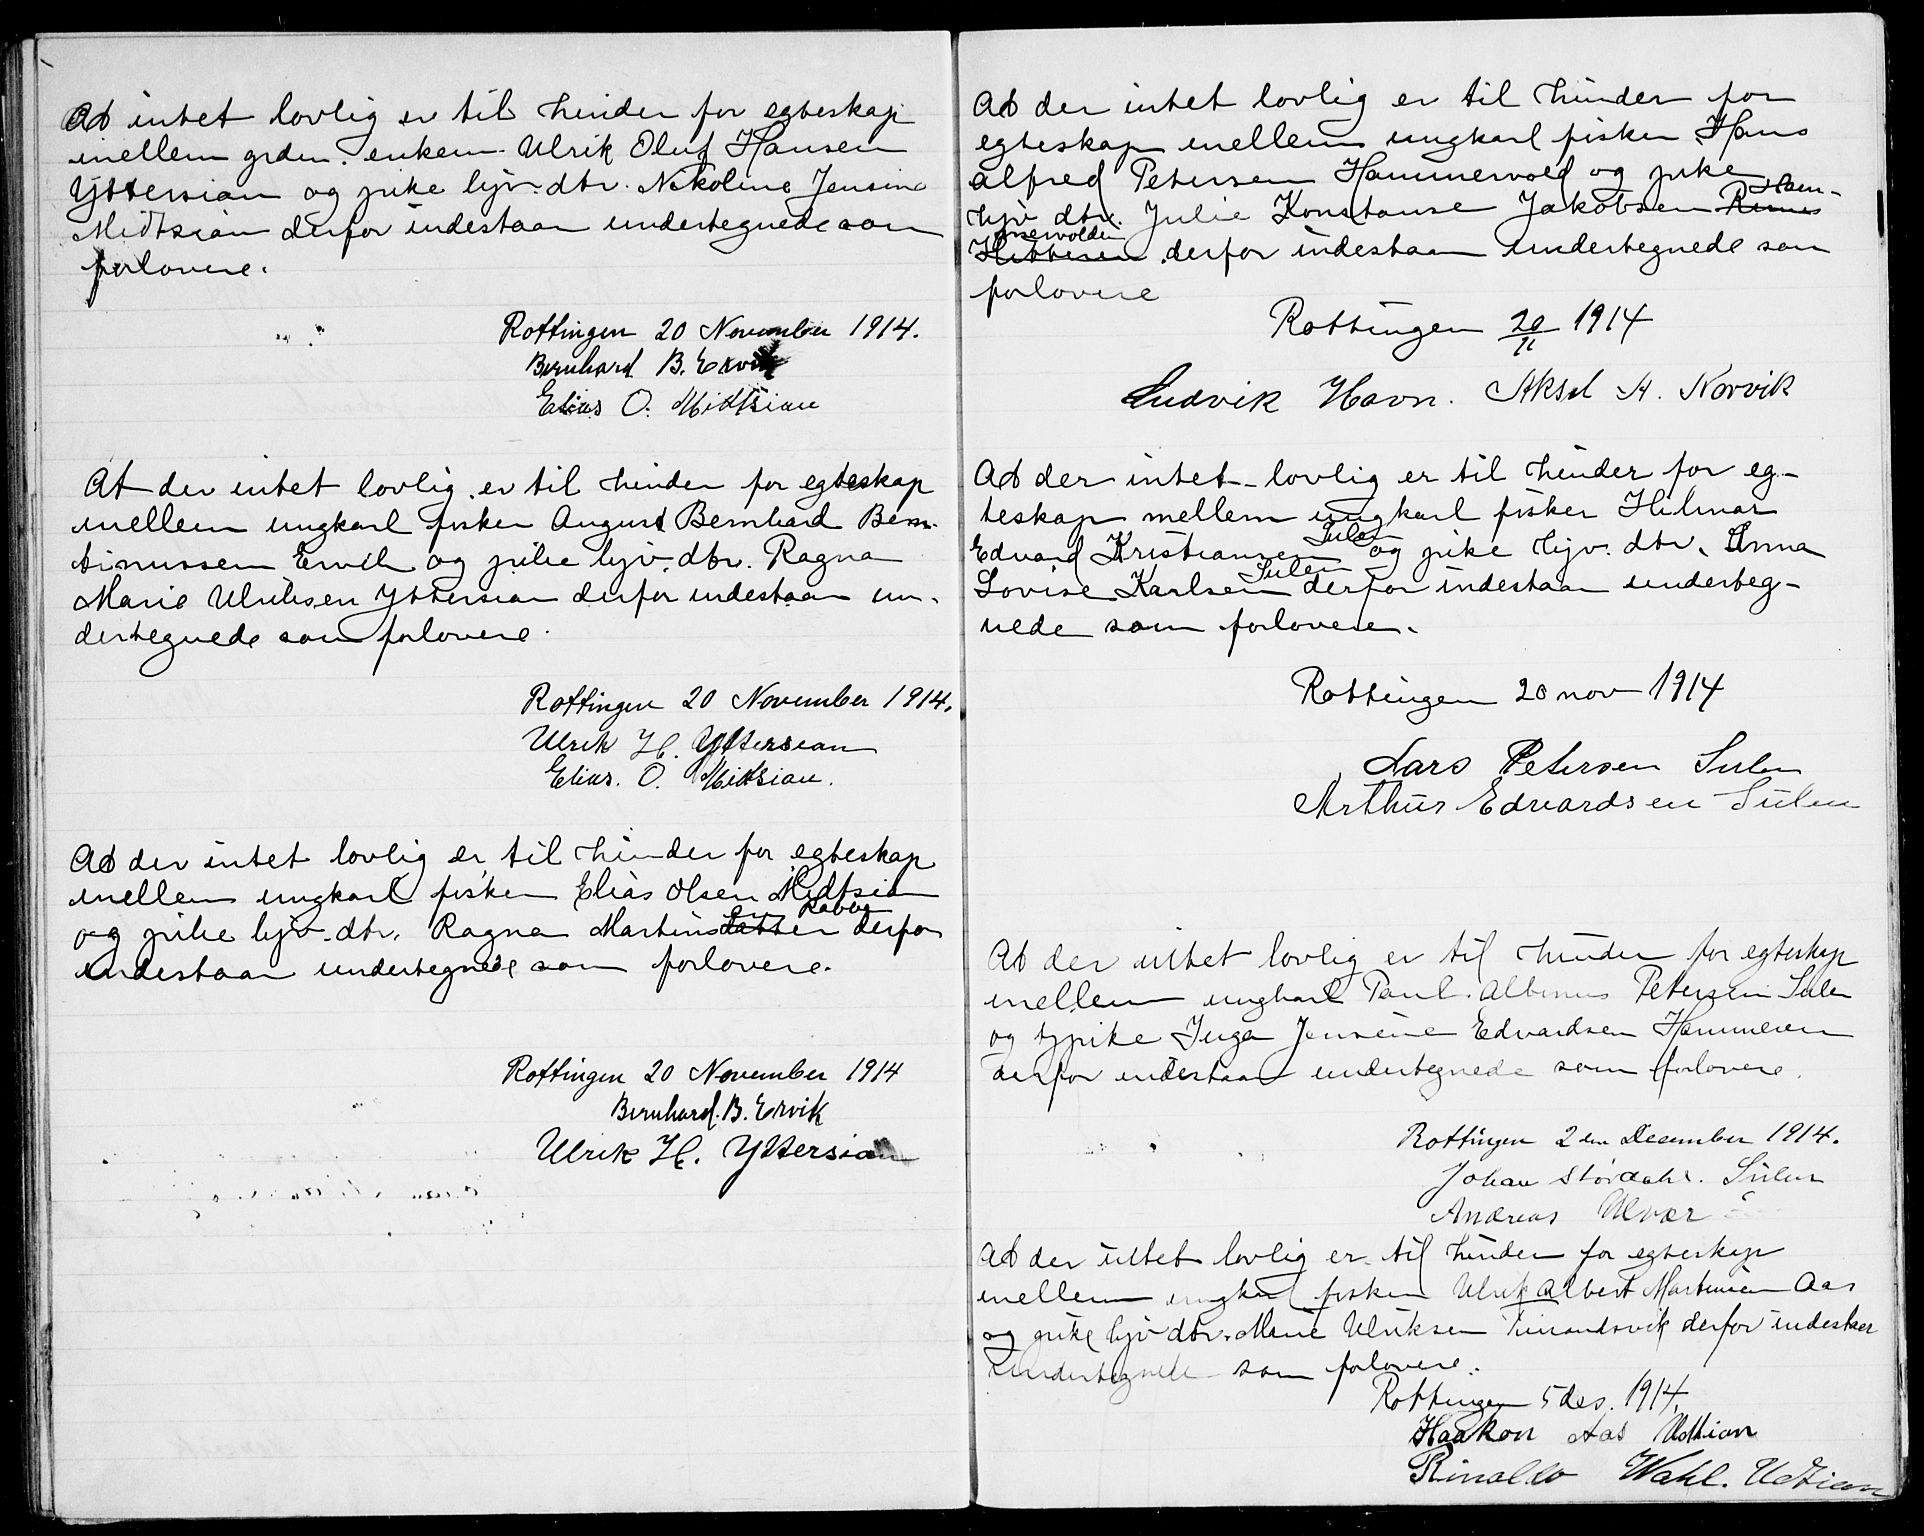 At intet lovlig er til hinder for egteskap
mellem grdm. enkem. Ulrik Oluf Hansen
Yttersian og pike hjv. dtr. Nikoline Jensine
Midtsian derfor indestaar undertegnede som
forlovere.
Rottingen 20 November 1914.
Bernhard B. Ervik
Elias O. Midtsian
At der intet lovlig er til hinder for egteskap
mellem ungkarl fisker August Bernhard Bern-
tinussen Ervik og pike hjv. dtr. Ragna
Marie Ulriksen Yttersian derfor indestaar un-
dertegnede som forlovere.
Rottingen 20 November 1914.
Ulrik H. Yttersian
Elias. O. Midtsian.
At der intet lovlig er til hinder for egteskap
mellem ungkarl fisker Elias Olsen Midtsian
og pike hjv. dtr. Ragna Martinsdatter derfor
indestaar undertegnede som forlovere.
Rottingen 20 November 1914
Bernhard. B. Ervik
Ulrik H. Yttersian
At der intet lovlig er til hinder for
egteskap mellem ungkarl fisker Hans
Alfred Petersen Hammervold og pike
hjv. dtr. Julie Konstanse Jakobsen Ham-
mervolden derfor indestaar undertegnede som
forlovere
Rottingen 20/11 1914
Ludvik Havn. Aksel A. Norvik
At der intet lovlig er til hinder for eg-
teskap mellem ungkarl fisker Hilmar
Edvard Kristiansen Sulen og pike hjv. dtr. Anna
Lovise Karlsen Sulen derfor indestaar underteg-
nede som forlovere.
Rottingen 20 nov 1914
Lars Petersen Sulen
Arthur Edvardsen Sulen
At der intet lovlig er til hinder for egteskap
mellem ungkarl Paul Albinus Petersen Sulen
og pike Inga Jensine Edvardsen Hammeren
derfor indestaar undertegnede som forlovere.
Rottingen 2den December 1914.
Johan Stördahl. Sulen
Andreas Ulvær
At der intet lovlig er til hinder for egteskap
mellem ungkarl fisker Ulrik Albert Martinsen Aas
og pike hjv dtr. Marie Ulriksen derfor indestaar
undertegnede som forlovere.
Rottingen 5 des. 1914.
Haakon Aas Utsian
Rinaldo Wahl. Utsian